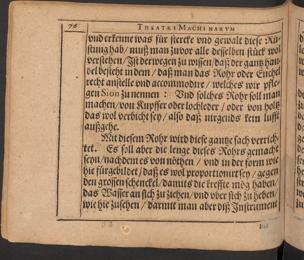 76 THEATRI MACHINARVM
vnd erkenne was für stercke vnd gewalt diese Rü-
stung hab / muß man zuvor alle desselben stück wol
verstehen / Ist derwegen zu wissen / daß der gantz han-
del besteht in dem / daß man das Rohr oder Euchel
recht anstelle vnd accommodire / welches wir pfle-
gen Sion zu nennen : Vnd solches Rohr soll man
machen / von Kupffer oder lochleder / oder von holtz
das wol verbicht sey / also daß nirgends kein lufft
außgehe.
Mit diesem Rohr wird diese gantze sach verrich-
tet. Es soll aber die lenge dieses Rohrs gemacht
seyn / nach dem es von nöthen / vnd in der form wie
hie fürgebildet / daß es wol proportionirt sey / gegen
den grossen schenckel / damits die kreffte mög haben /
das Wasser an sich zu ziehen / vnd vber sich zu heben /
wie hie zusehen / darmit man aber diß Instrument